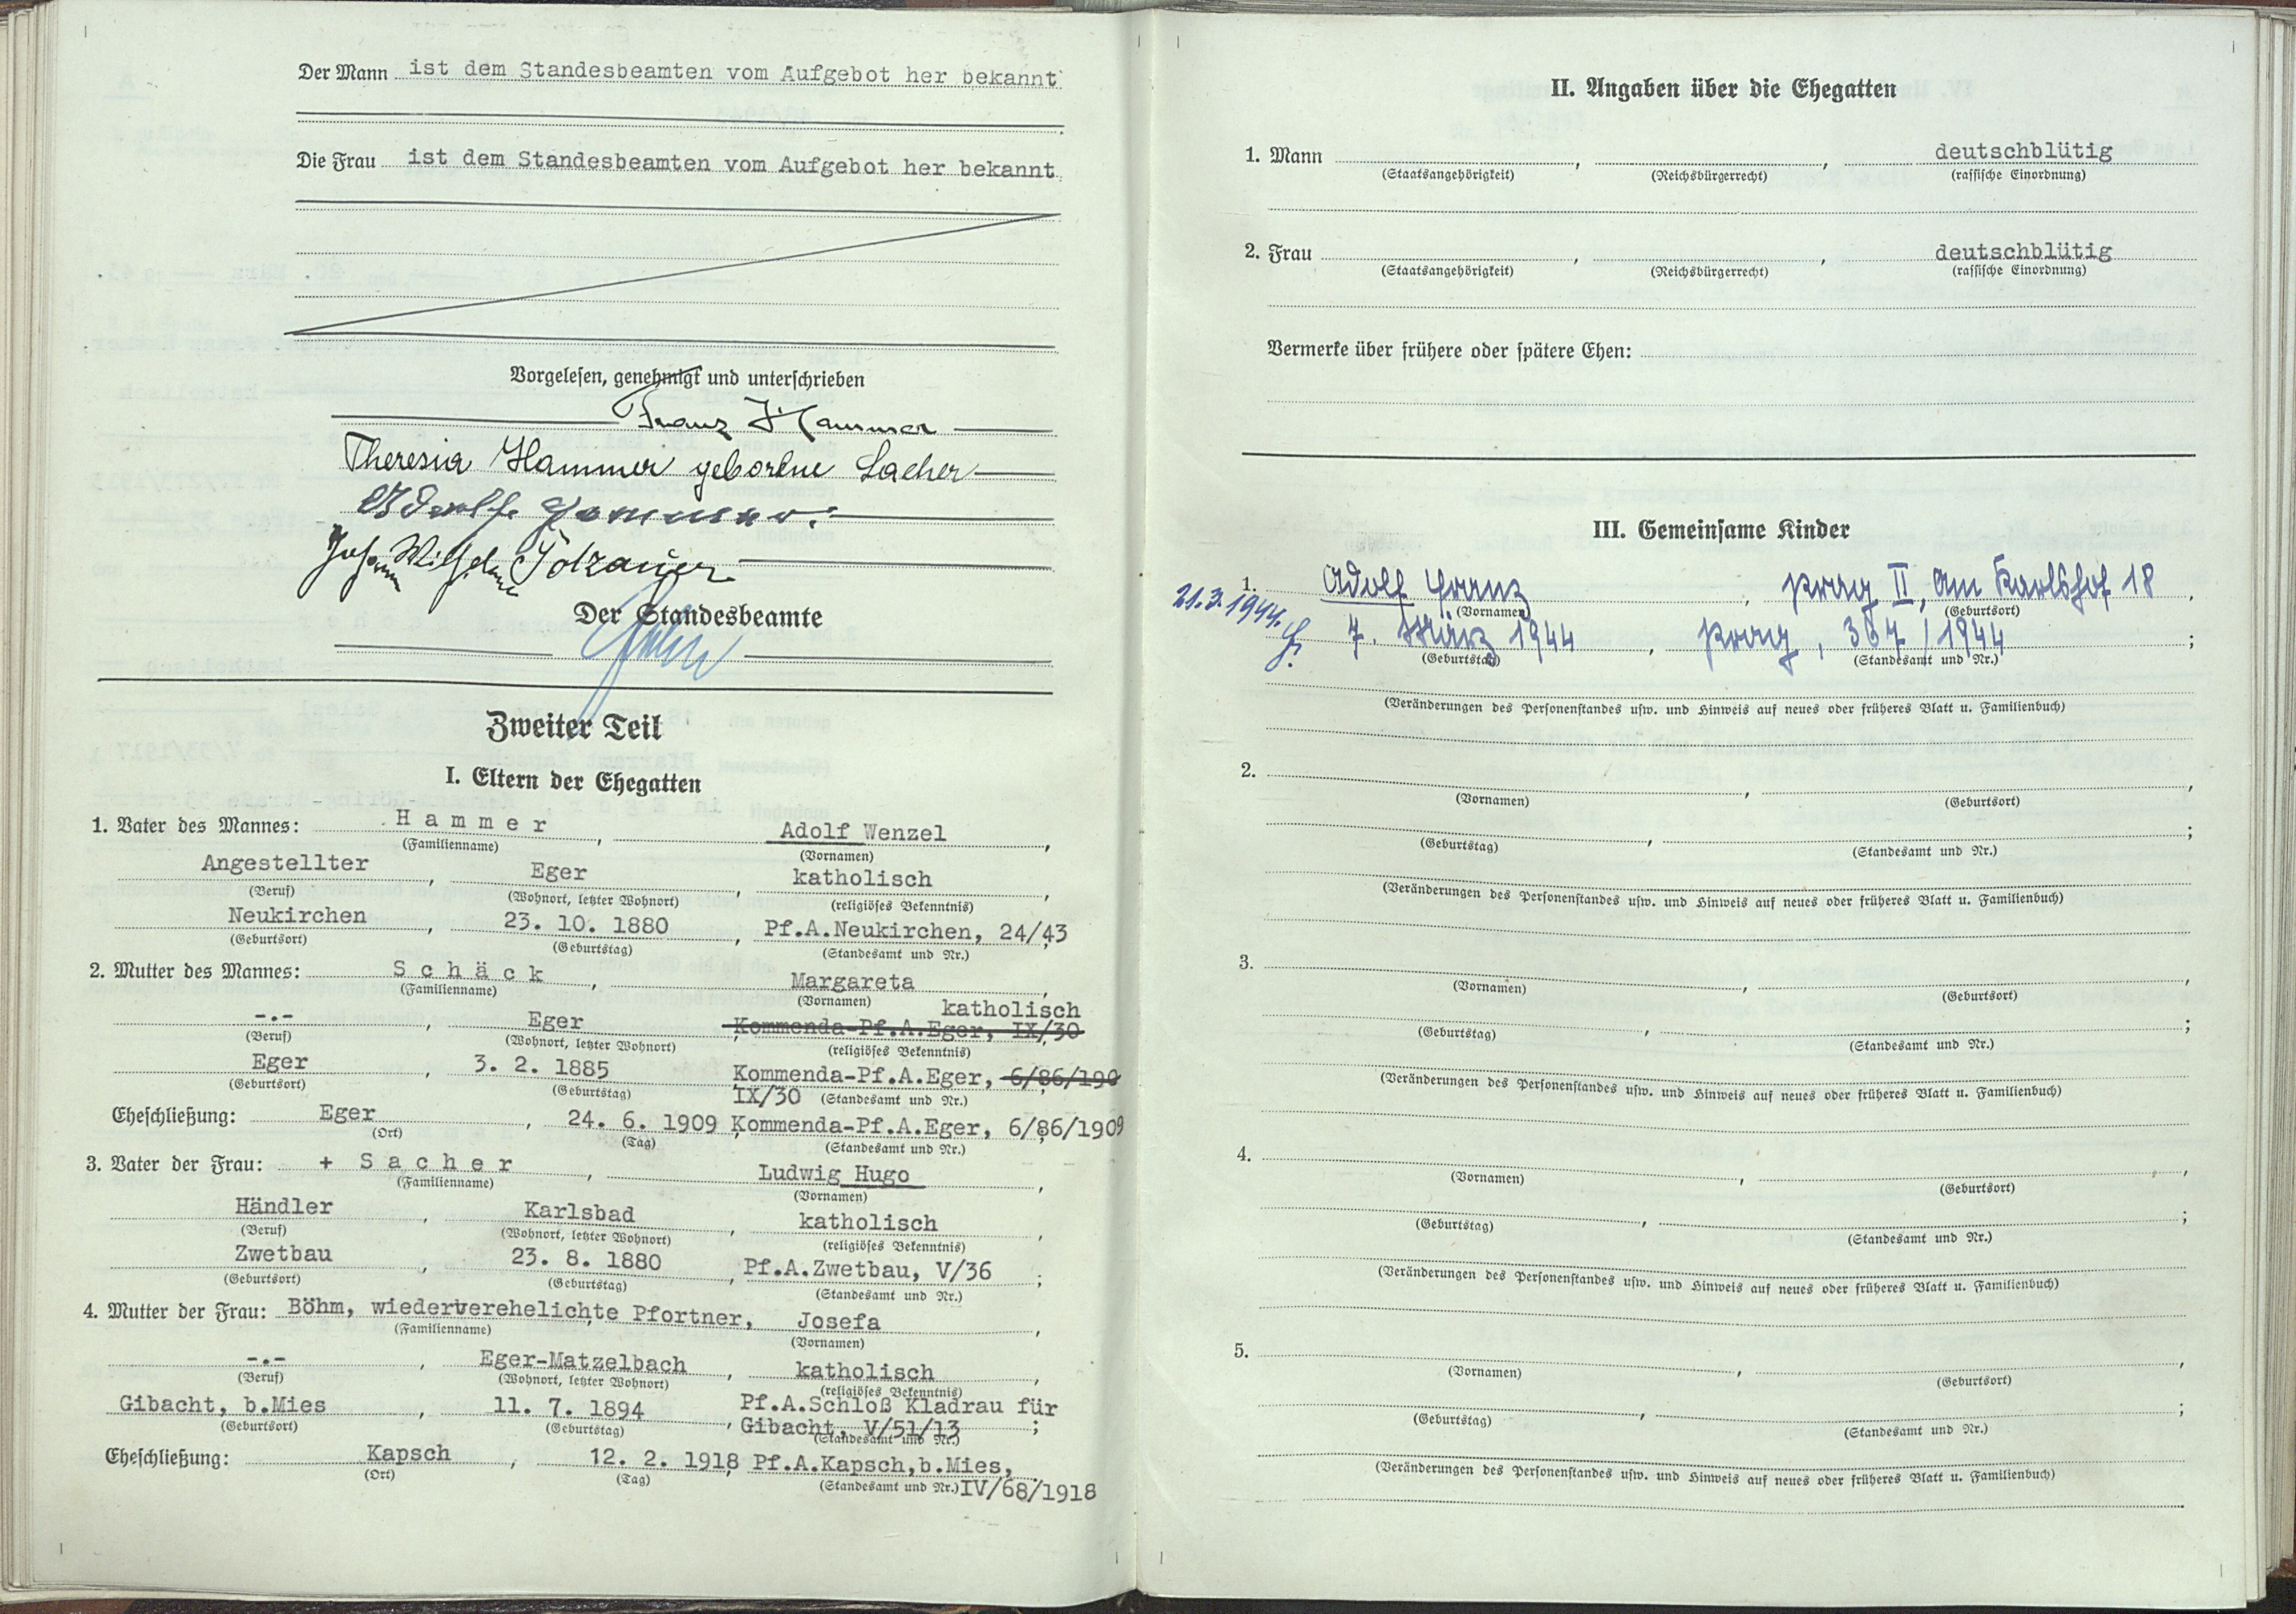 Der Mann ist dem Standesbeamten vom Aufgebot her bekannt
Die Frau ist dem Standesbeamten vom Aufgebot her bekannt
Vorgelesen, genehmigt und unterschrieben
Franz Hammer
Theresia Hammer geborene Sacher
Adolf Hammer
Johann Wilhelm Tolzauer
Der Standesbeamte
Zweiter Teil
I. Eltern der Ehegatten
1. Vater des Mannes: Hammer, Adolf Wenzel,
(Familienname) (Vornamen)
Angestellter, Eger, katholisch,
(Beruf) (Wohnort, letzter Wohnort) (religiöses Bekenntnis)
Neukirchen, 23. 10. 1880, Pf.A.Neukirchen, 24/43;
(Geburtsort) (Geburtstag) (Standesamt und Nr.)
2. Mutter des Mannes: Schäck, Margareta,
(Familienname) (Vornamen) katholisch
-.-, Eger, Kommenda-Pf.A.Eger, IX/30
(Beruf) (Wohnort, letzter Wohnort) (religiöses Bekenntnis)
Eger, 3. 2. 1885 Kommenda-Pf.A.Eger, 6/86/190
(Geburtsort) (Geburtstag) IX/30 (Standesamt und Nr.)
Eheschließung: Eger, 24. 6. 1909 Kommenda-Pf.A.Eger, 6/86/1909
(Ort) (Tag) (Standesamt und Nr.)
3. Vater der Frau: + Sacher, Ludwig Hugo,
(Familienname) (Vornamen)
Händler, Karlsbad, katholisch,
(Beruf) (Wohnort, letzter Wohnort) (religiöses Bekenntnis)
Zwetbau, 23. 8. 1880, Pf.A.Zwetbau, V/36;
(Geburtsort) (Geburtstag) (Standesamt und Nr.)
4. Mutter der Frau: Böhm, wiederverehelichte Pfortner, Josefa,
(Familienname) (Vornamen)
-.-, Eger-Matzelbach, katholisch,
(Beruf) (Wohnort, letzter Wohnort) (religiöses Bekenntnis)
Gibacht, b.Mies, 11. 7. 1894, Pf.A.Schloß Kladrau für
Gibacht, V/51/13;
(Geburtsort) (Geburtstag) (Standesamt und Nr.)
Eheschließung: Kapsch, 12. 2. 1918, Pf.A.Kapsch,b.Mies,
(Ort) (Tag) (Standesamt und Nr.) IV/68/1918
II. Angaben über die Ehegatten
1. Mann , , deutschblütig
(Staatsangehörigkeit) (Reichsbürgerrecht) (rassische Einordnung)
2. Frau , , deutschblütig
(Staatsangehörigkeit) (Reichsbürgerrecht) (rassische Einordnung)
Vermerke über frühere oder spätere Ehen:
III. Gemeinsame Kinder
1. Adolf Franz, Prag II, Am Karlshof 18,
(Vornamen) (Geburtsort)
21.3.1944.
7. März 1944, Prag, 367/1944;
(Geburtstag) (Standesamt und Nr.)
(Veränderungen des Personenstandes usw. und Hinweis auf neues oder früheres Blatt u. Familienbuch)
2. , ,
(Vornamen) (Geburtsort)
, ;
(Geburtstag) (Standesamt und Nr.)
(Veränderungen des Personenstandes usw. und Hinweis auf neues oder früheres Blatt u. Familienbuch)
3. , ,
(Vornamen) (Geburtsort)
, ;
(Geburtstag) (Standesamt und Nr.)
(Veränderungen des Personenstandes usw. und Hinweis auf neues oder früheres Blatt u. Familienbuch)
4. , ,
(Vornamen) (Geburtsort)
, ;
(Geburtstag) (Standesamt und Nr.)
(Veränderungen des Personenstandes usw. und Hinweis auf neues oder früheres Blatt u. Familienbuch)
5. , ,
(Vornamen) (Geburtsort)
, ;
(Geburtstag) (Standesamt und Nr.)
(Veränderungen des Personenstandes usw. und Hinweis auf neues oder früheres Blatt u. Familienbuch)